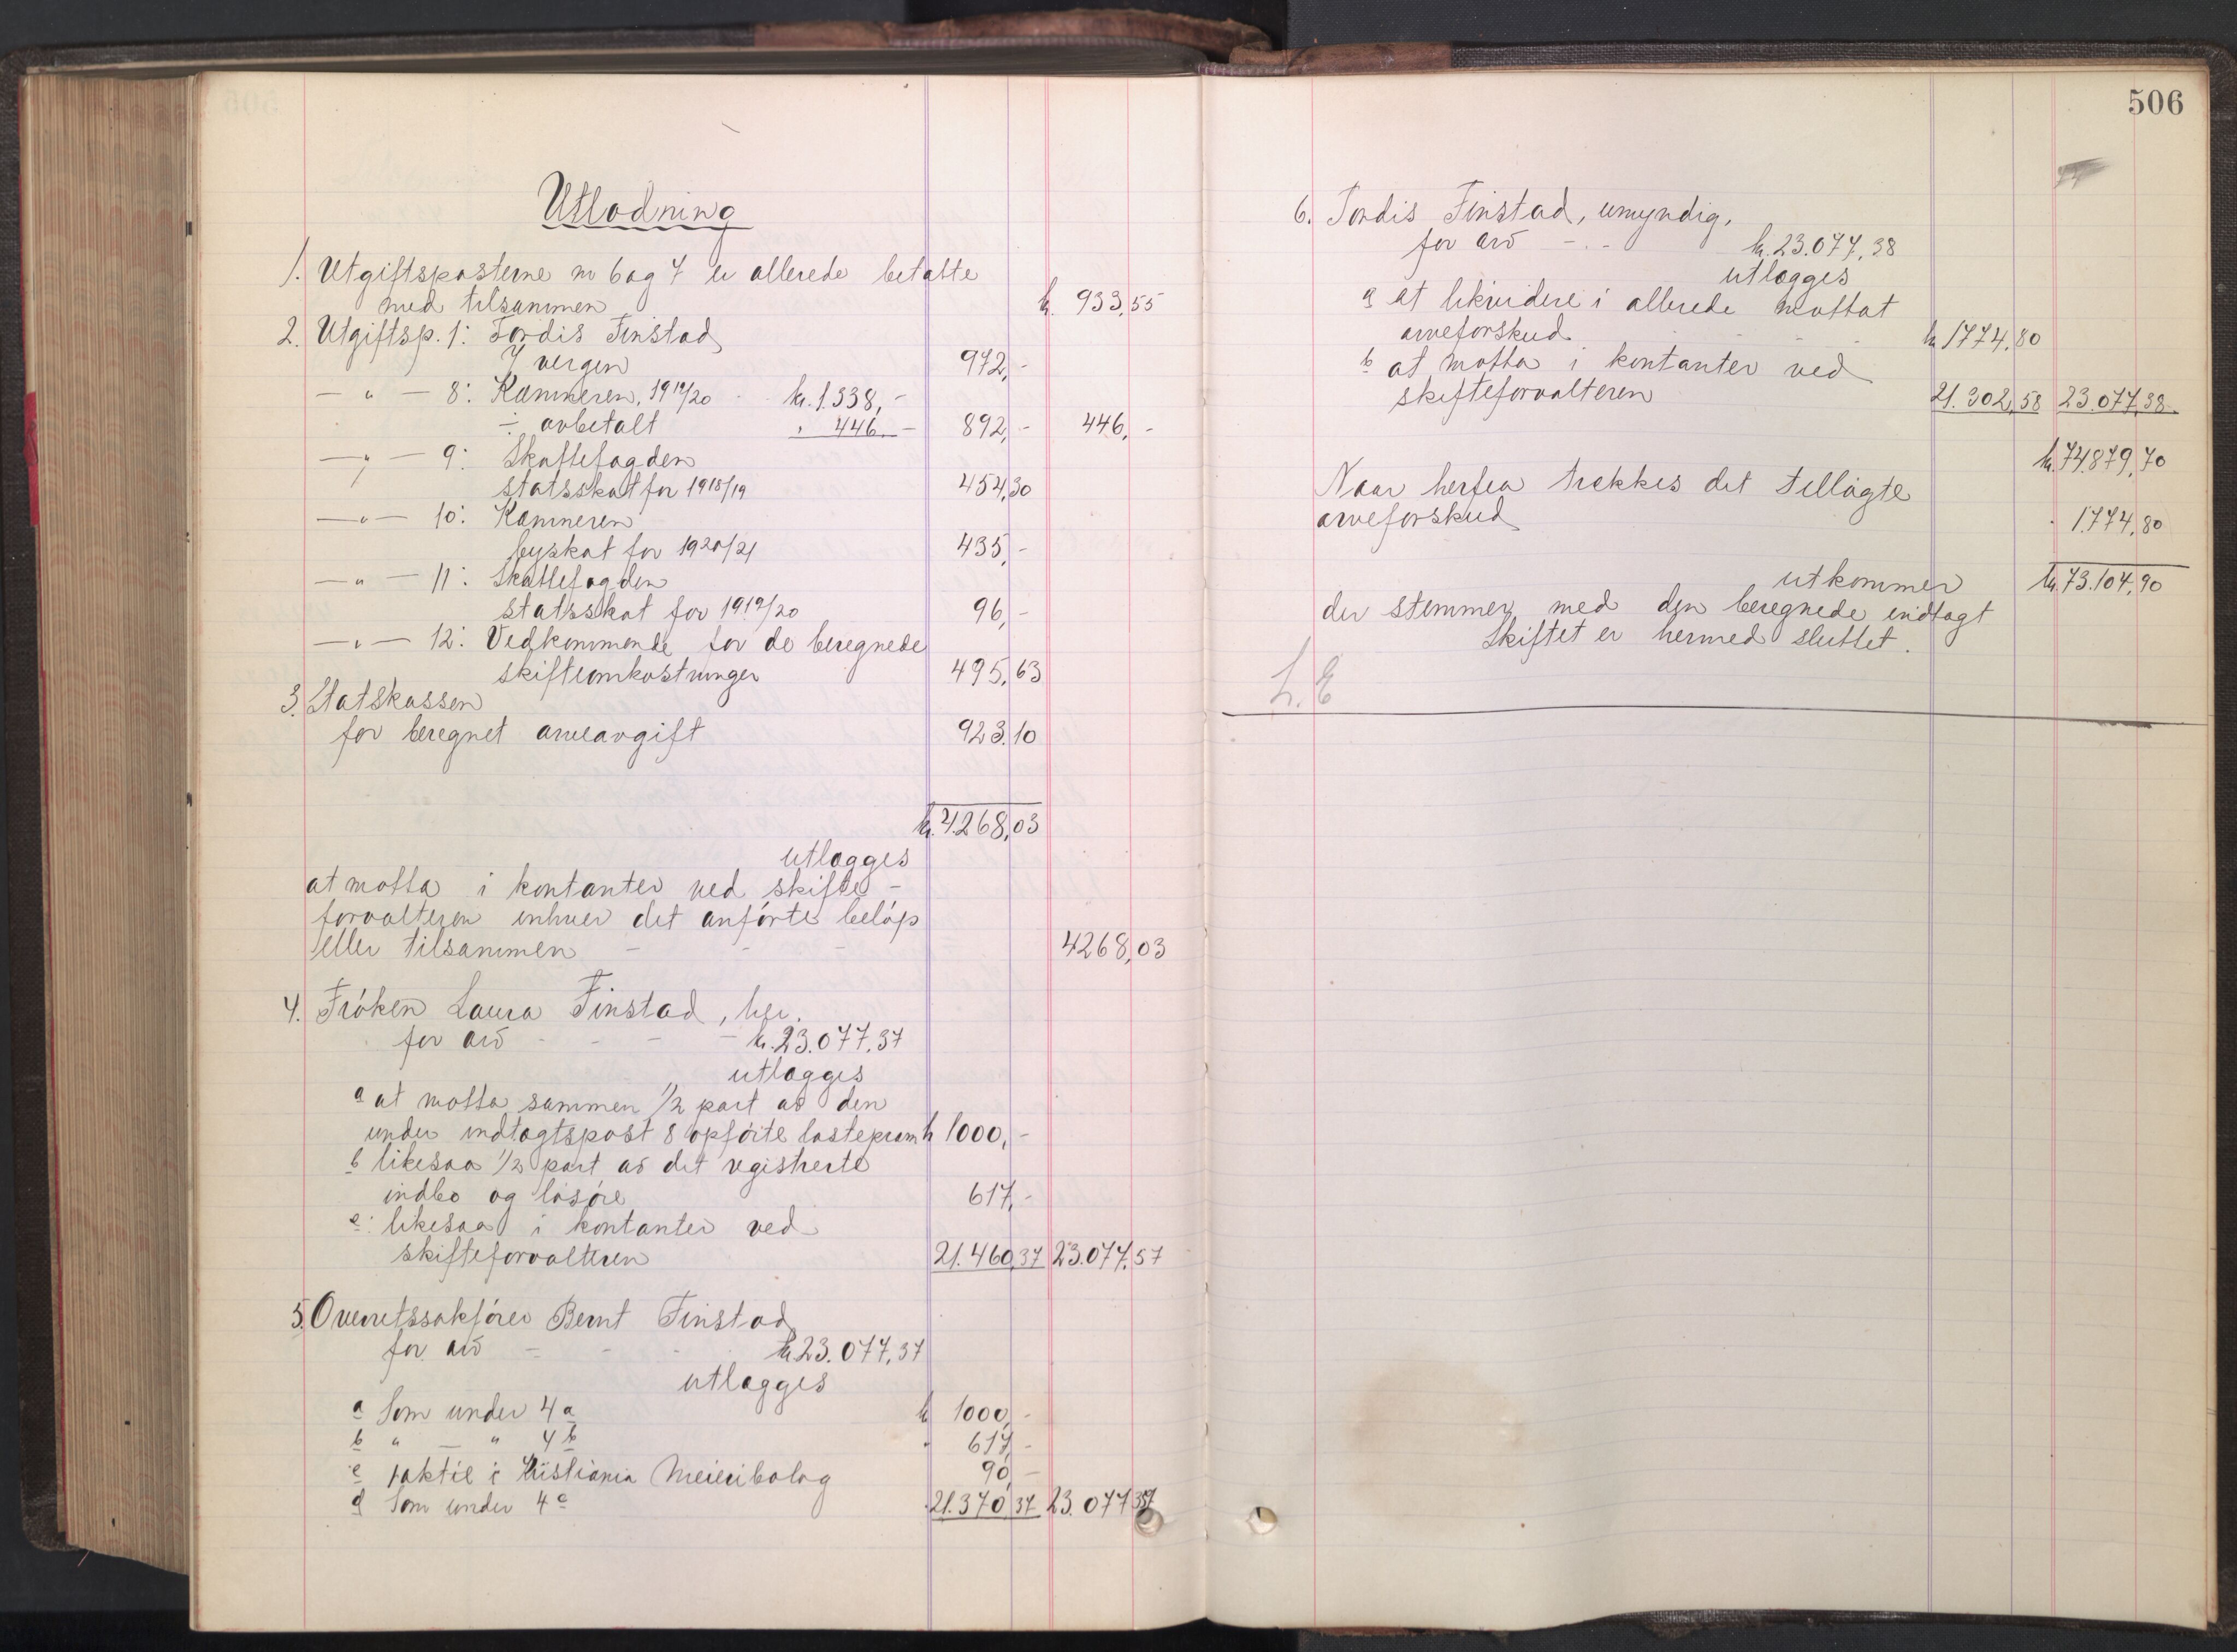 Utlodning
1. Utgiftsposterne nr 6 og 7 er allerede betalte
med tilsammen kr. 933,55
2. Utgiftsp. 1: Tordis Finstad
v vergen 972,-
— " — 8: Kæmneren, 1919/20 kr. 1.338,-
÷ avbetalt " 446,- 892,- 446,-
— " — 9: Skattefogden
statsskat for 1918/19 454,30
— " — 10: Kæmneren
byskat for 1920/21 435,-
— " — 11: Skattefogden
statsskat for 1919/20 96,-
— " — 12: Vedkommende for de beregnede
skifteomkostninger 495,63
3. Statskassen
for beregnet arveavgift 923.10
kr. 4268,03
utlægges
at motta i kontanter ved skifte-
forvalteren enhver det anførte beløp
eller tilsammen - - - 4268,03
4. Frøken Laura Finstad, her.
for arv - - - - kr. 23.077,37
utlægges
a at motta sammen 1/2 part av den
under indtægtspost 8 opførte lastepram kr 1000,-
b likesaa 1/2 part av det registrerte
indbo og løsøre 617,-
c: likesaa i kontanter ved
skifteforvalteren 21.460,37 23.077,57
5. Overretssakfører Bernt Finstad
for arv - - - kr 23.077,37
utlægges
a Som under 4a kr 1000,-
b " — " 4b " 617,-
c 1 aktie i Kristiania Meieribolag 90,-
d Som under 4c 21.370,37 23.077,37
506
6. Tordis Finstad, umyndig,
for arv - - - kr. 23.077,38
utlægges
a at likvidere i allerede mottat
arveforskud kr 1774,80
b at motta i kontanter ved
skifteforvalteren 21.302,58 23.077,38
kr. 74879,70
Naar herfra trækkes det tillagte
arveforskud " 1774,80
utkommer kr. 73.104,90
der stemmer med den beregnede indtægt
Skiftet er hermed sluttet.
L. E